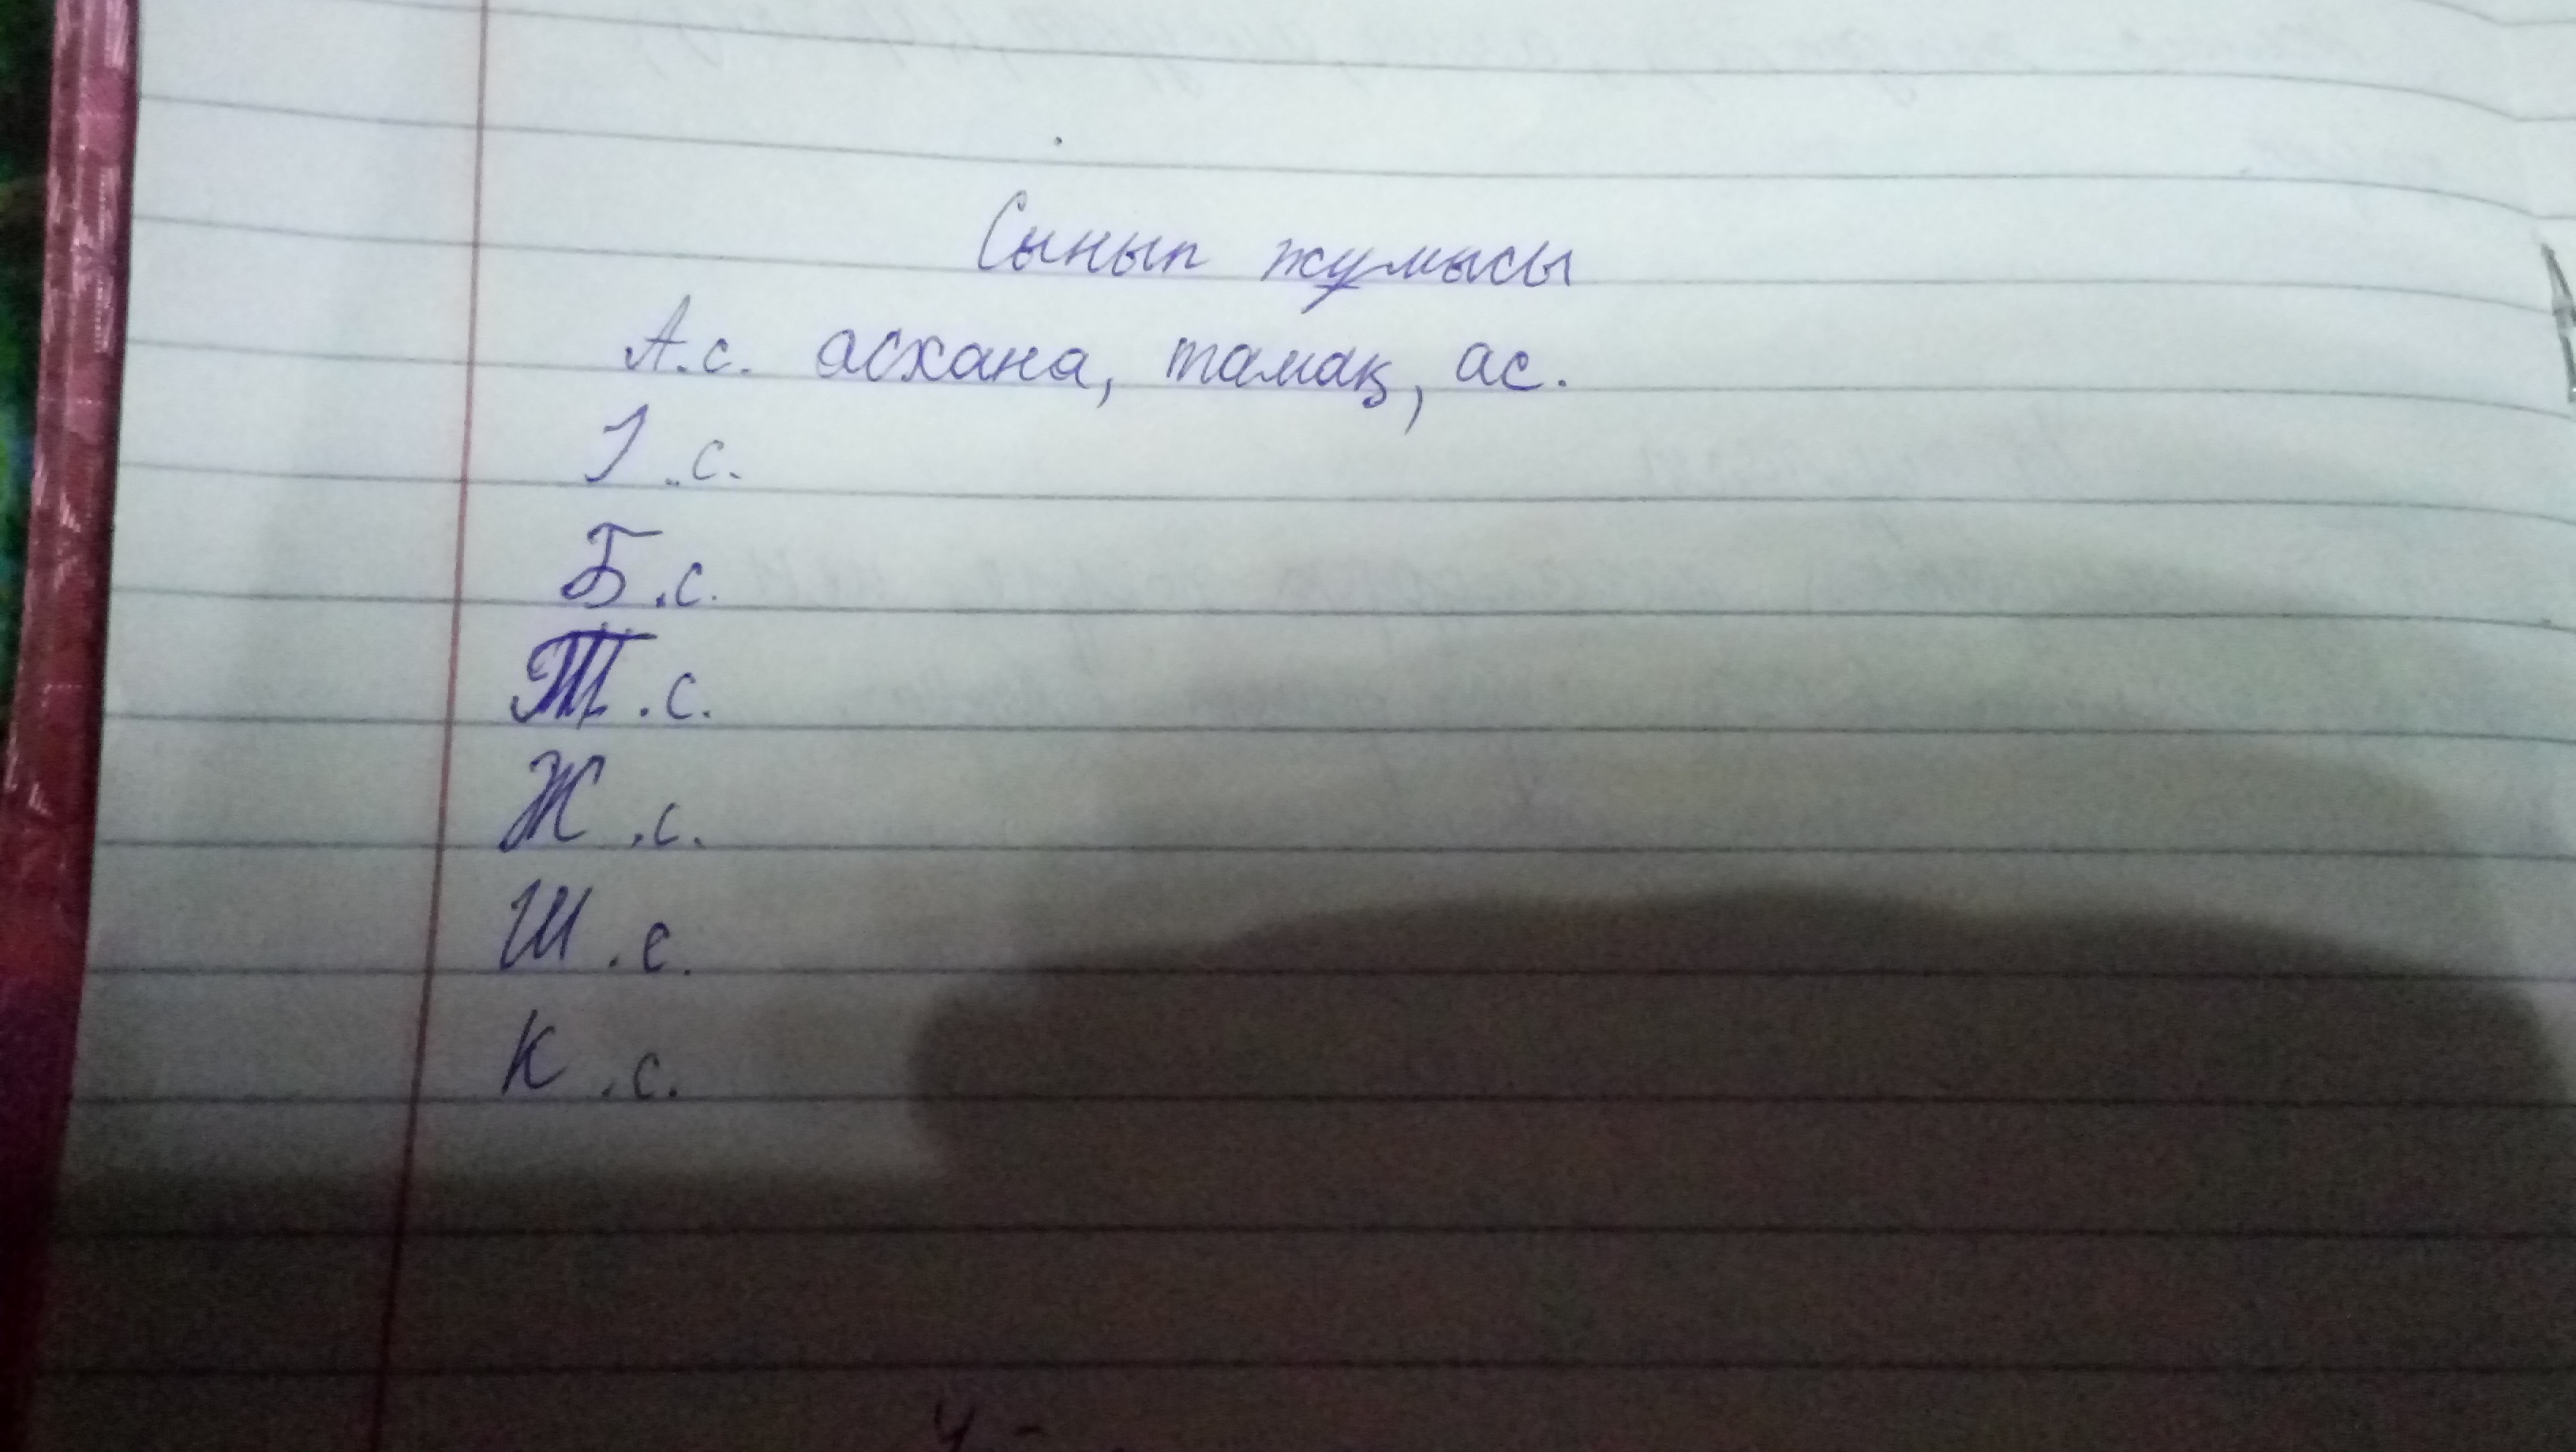 Сынып жұмысы
А.с. асхана, тамақ, ас.
І.с.
Б.с.
Т.с.
Ж.с.
Ш.с.
К.с.